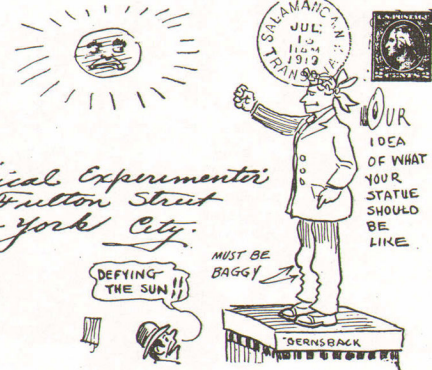 SALAMANCA N.Y.
JUL
11 AM
1919
TRANSIT
U.S. POSTAGE
CENTS
OUR
IDEA
OF WHAT
YOUR
STATUE
SHOULD
BE
LIKE
ical Experimenter
Fulton Street
York City.
MUST BE
BAGGY
DEFYING
THE SUN!!
GERNSBACK